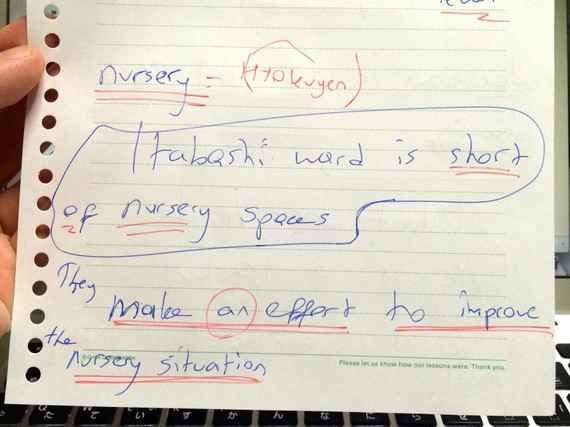 nursery = (Hoikuyen)
Itabashi ward is short
of nursery spaces
They
make an effort to improve
the
nursery situation
Please let us know how our lessons were. Thank you.